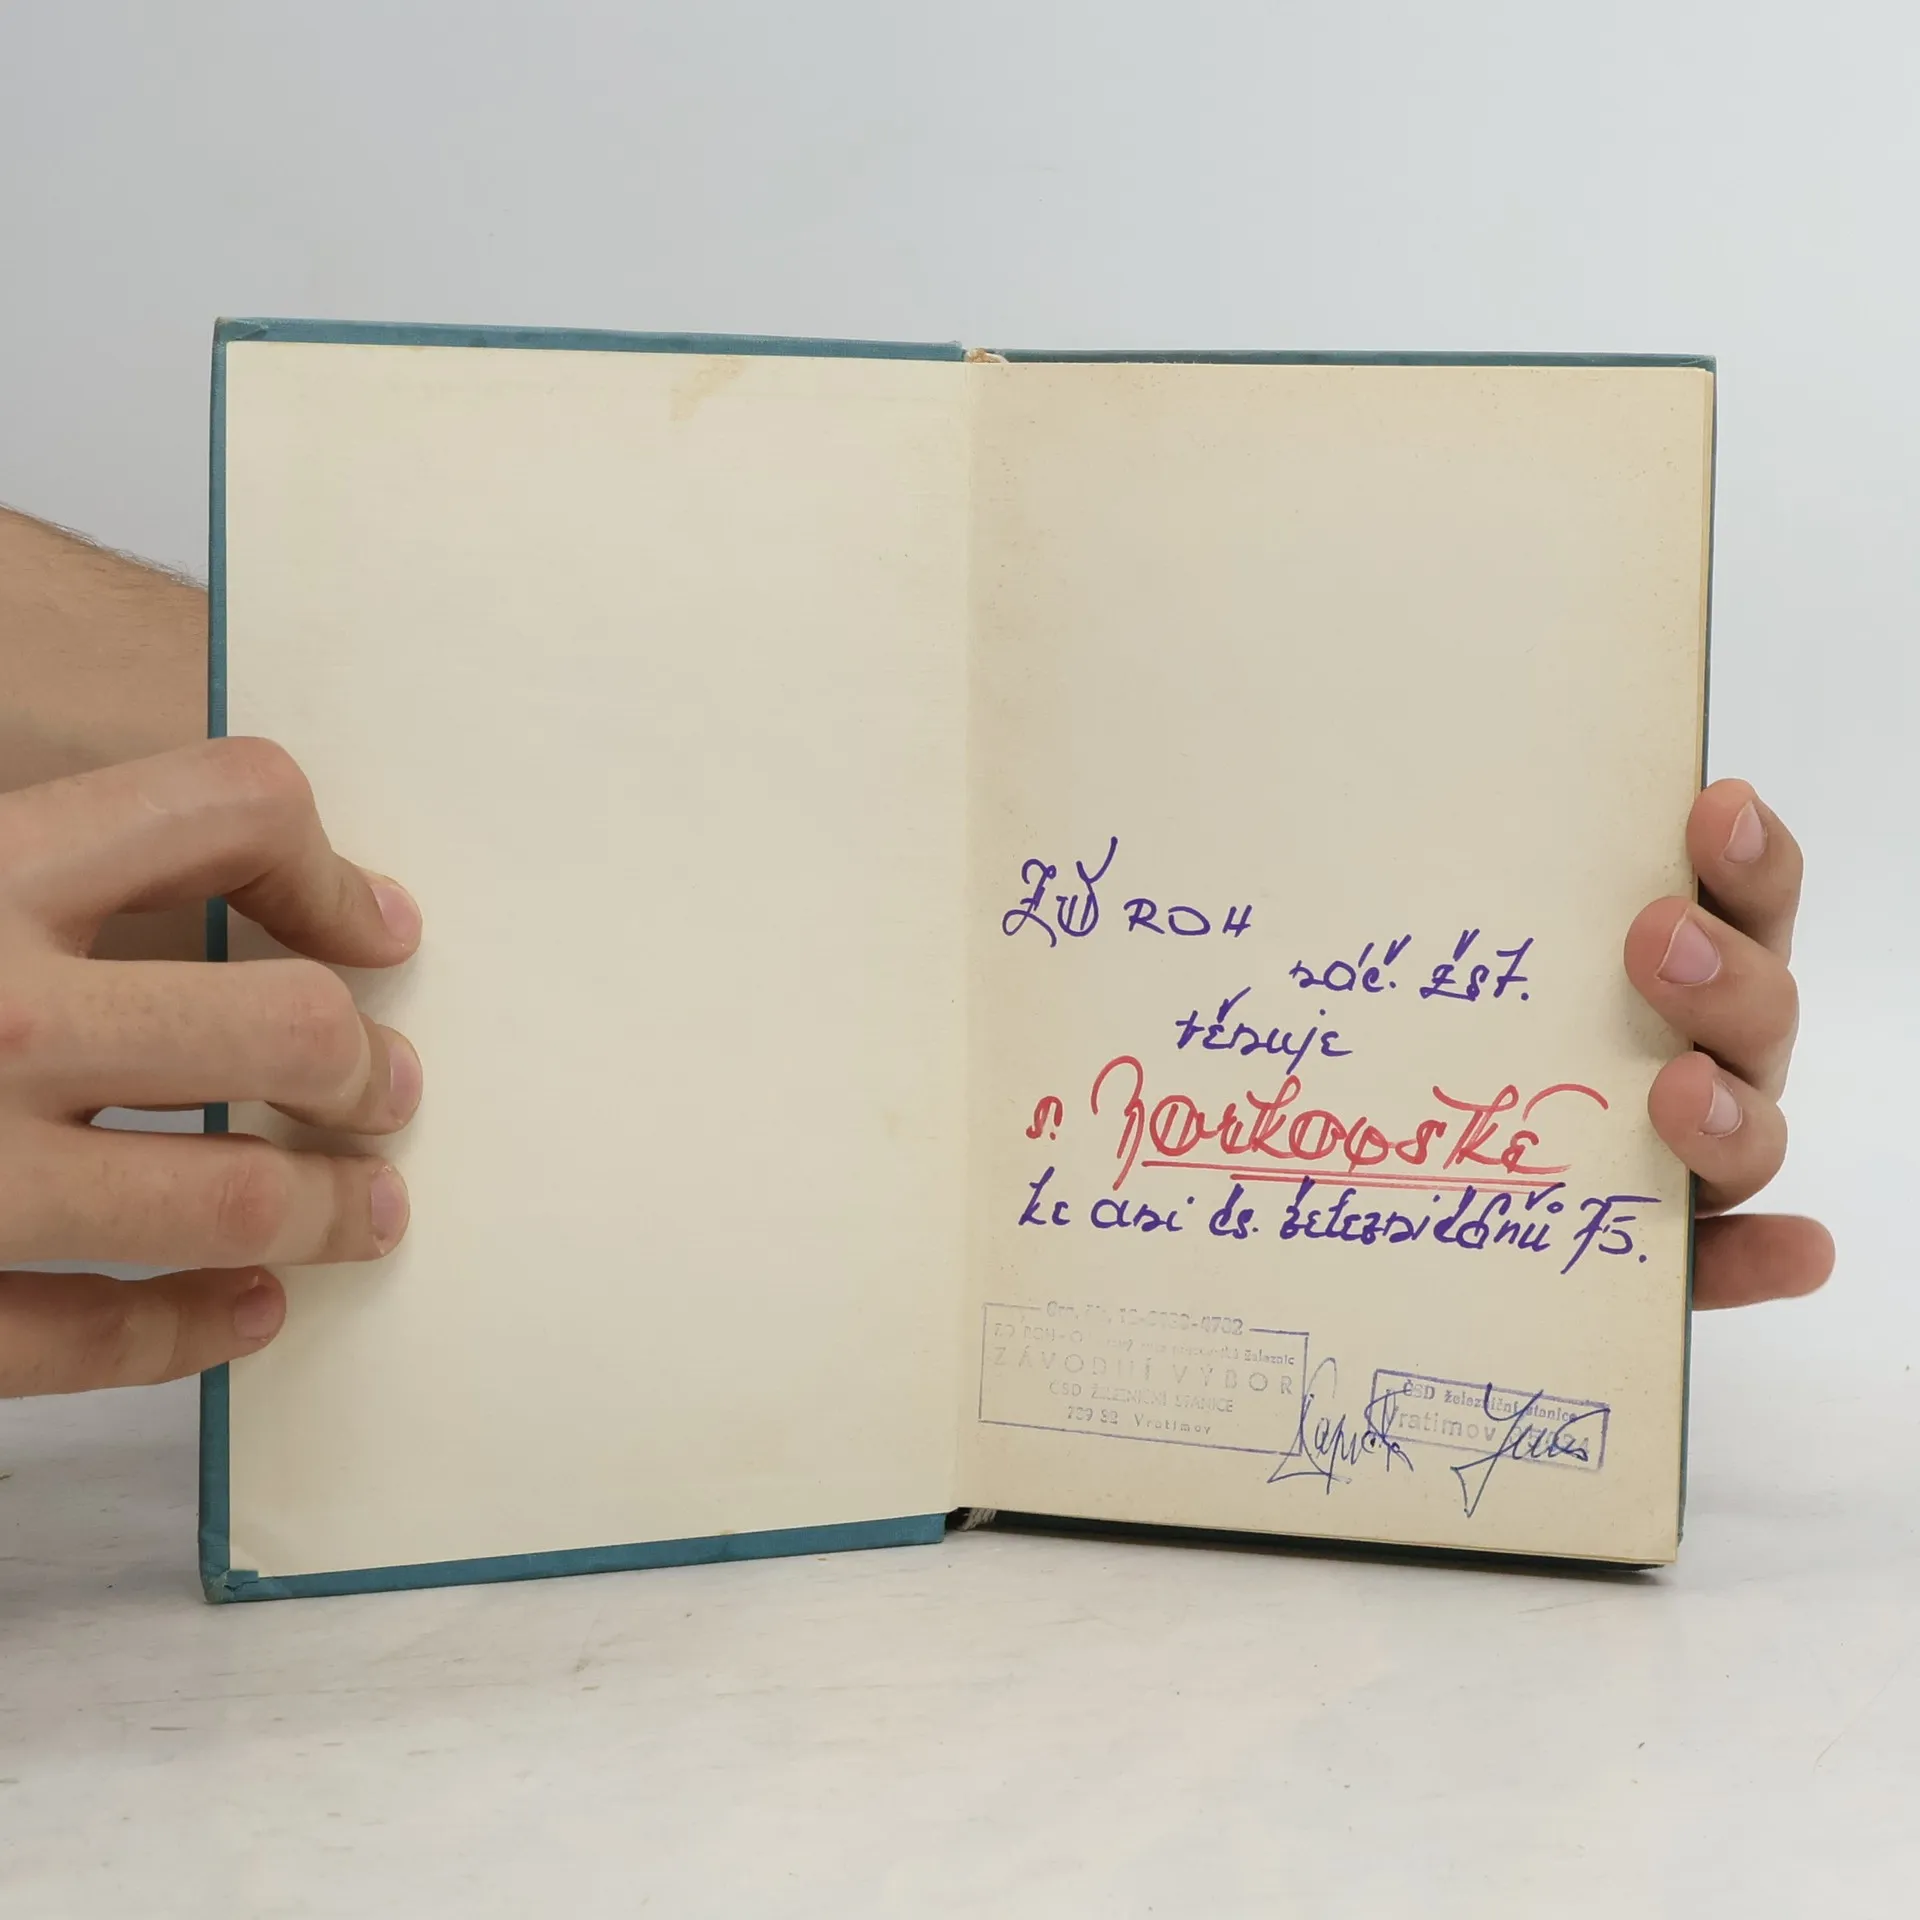 ZV ROH
náč. žst.
věnuje
s. Borkovské
ke dni čs. železničářů 75.
ZÁVODNÍ VÝBOR
ČSD ŽELEZNIČNÍ STANICE
739 32 Vratimov
ČSD železniční stanice
Vratimov